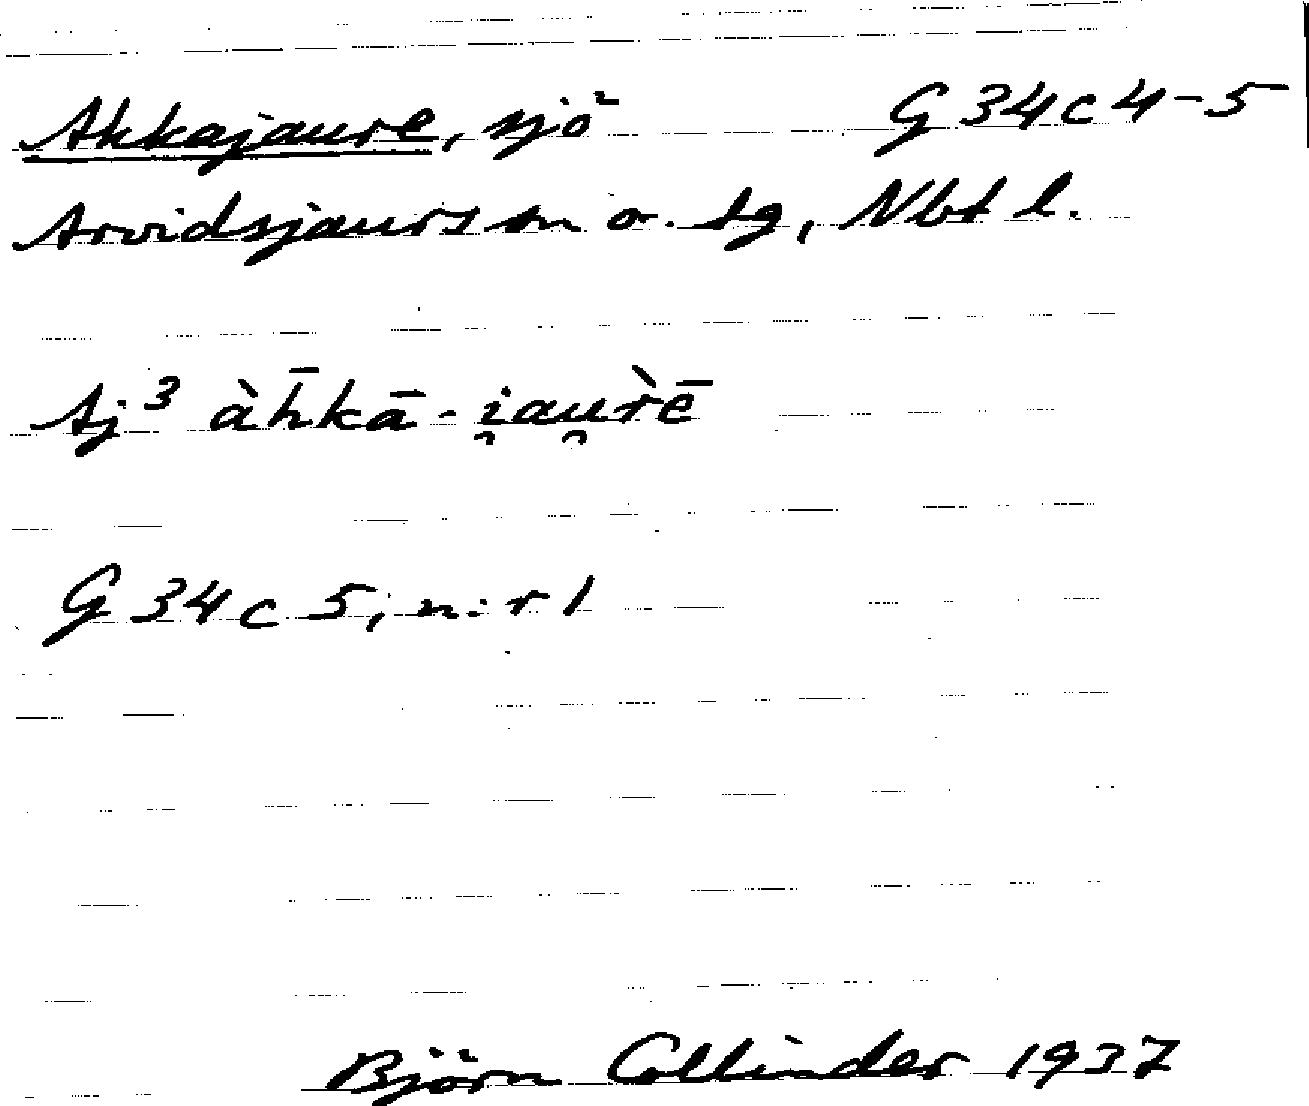 Ahkajaure, sjö G 34 c 4-5
Arvidsjaurs sn o. tg, Nbt l.
Aj³ àh̄kā-i̯au̯r̀ē
G 34 c 5, n:r 1
Björn Collinder 1937